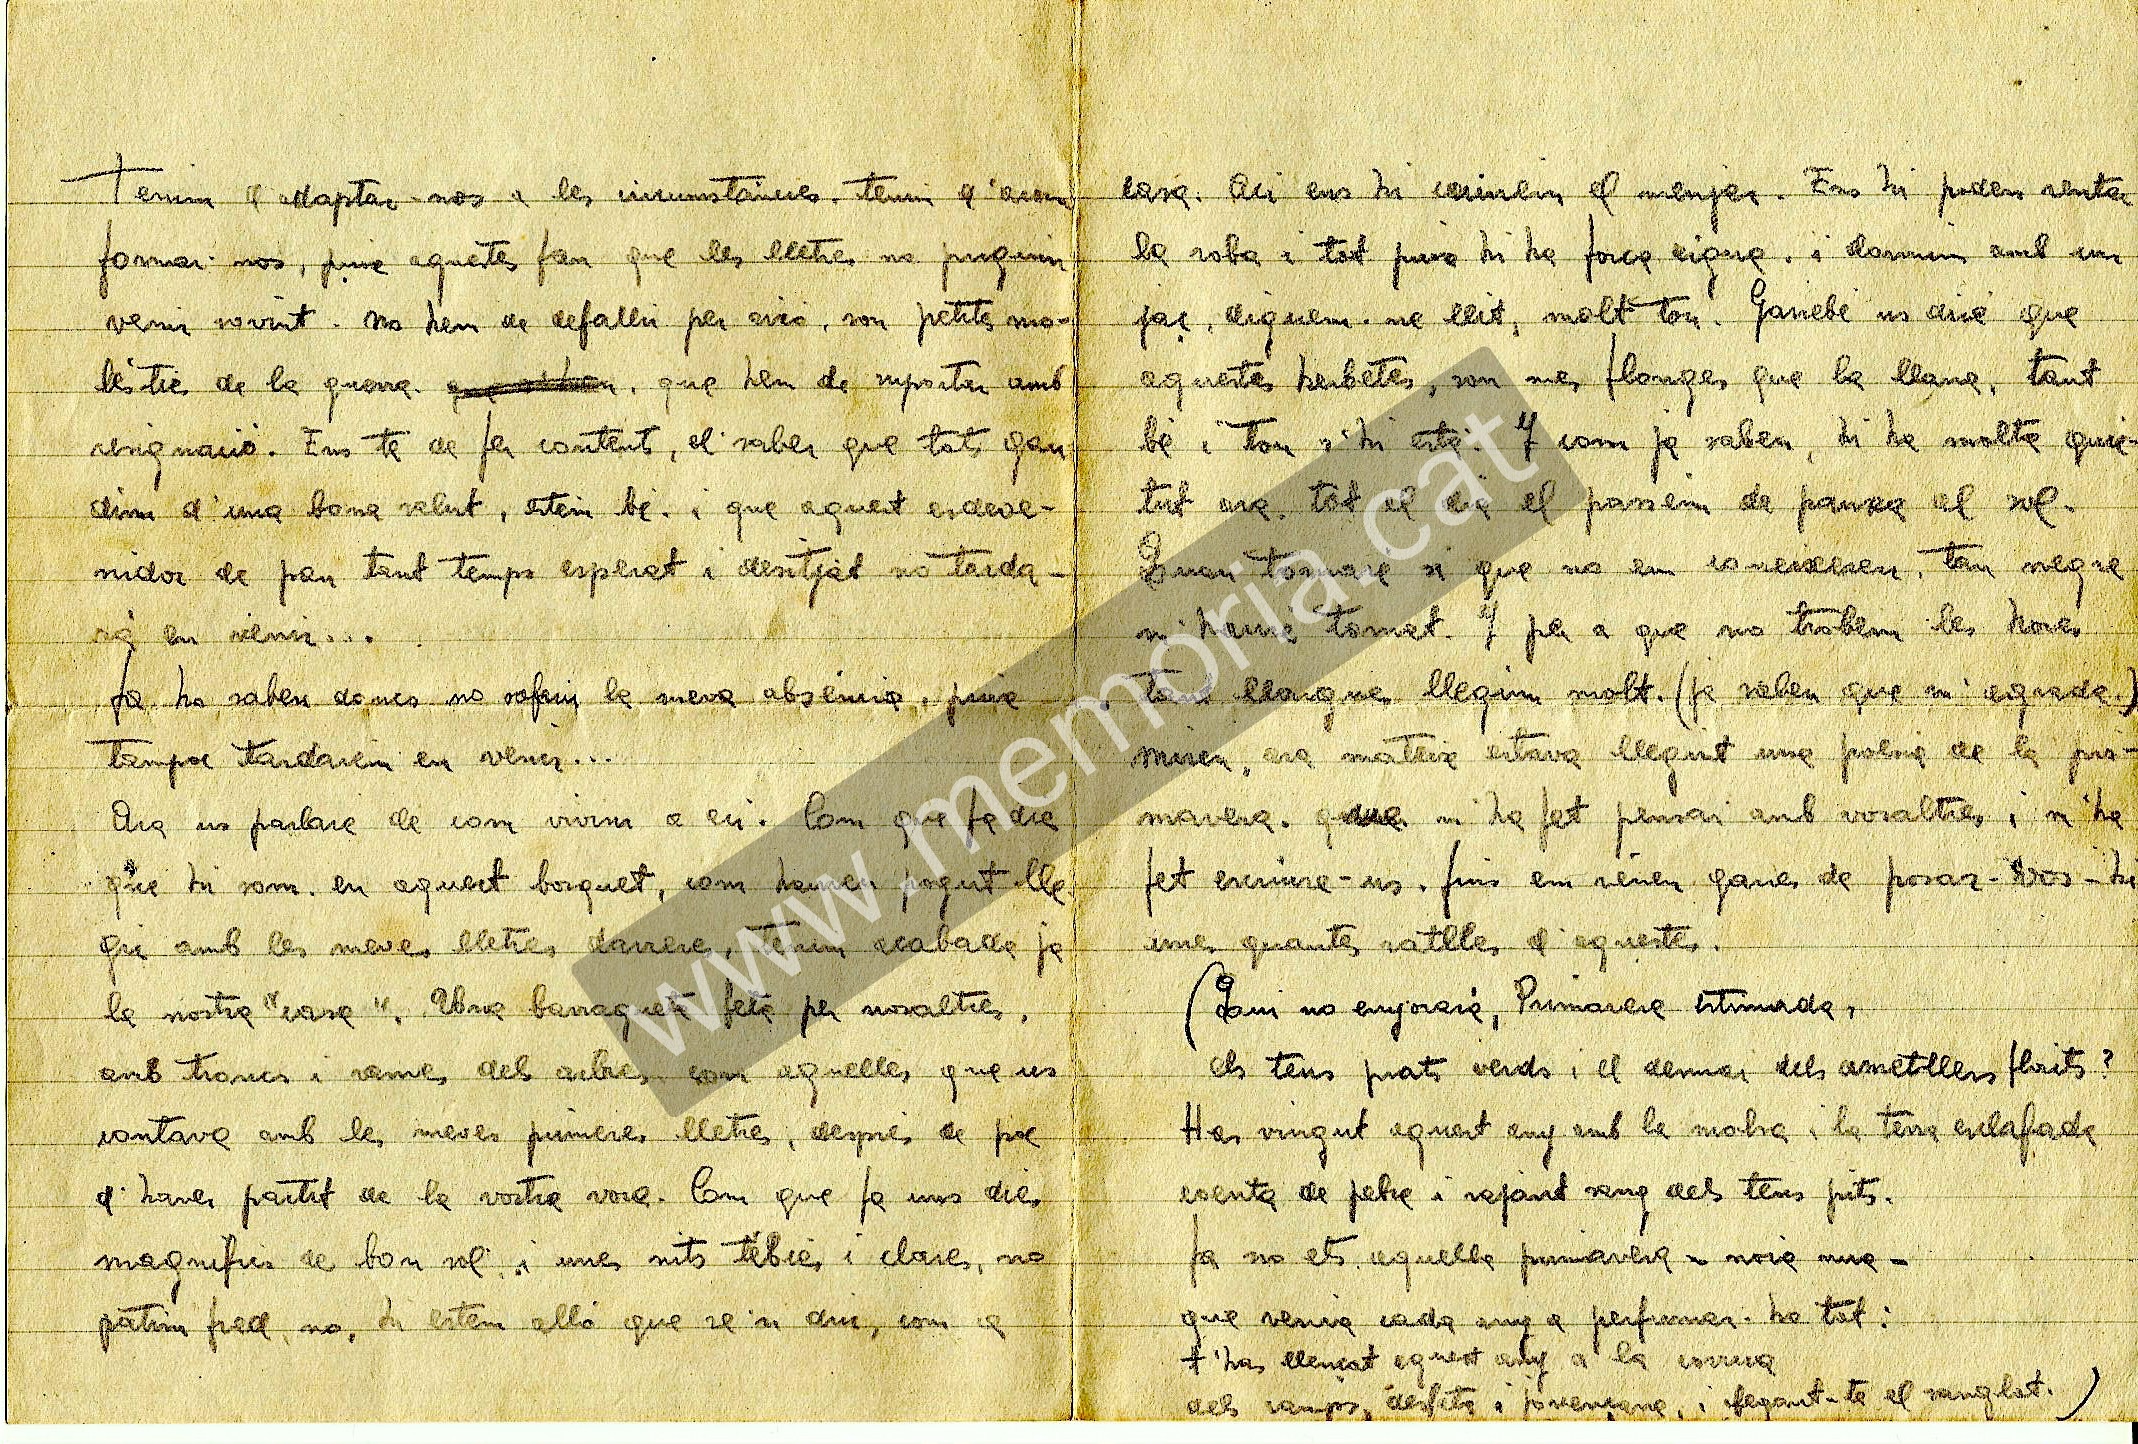 Tenim d'adaptar-nos a les circumstancies. tenim d'acon
formar-nos, puix aquestes fan que les lletres no puguin
venir sovint. No hem de defallir per això, son petites mo-
lèsties de la guerra. que hem de suportar amb
resignació. Ens te de fer contents, el saber que tots gau
dim d'una bona salut, estem bé. i que aquest esdeve-
nidor de pau tant temps esperat i desitjat no tarda-
rà en venir...
Ja ho saben doncs no sofrin la meva absència, puix
tampoc tardarem en venir...
Ara us parlaré de com vivim a ci. Com que ja dia
que hi som. en aquest bosquet, com hauren pogut lle
gir amb les meves lletres darrere, tenim acabada ja
la nostra "casa". Una barraqueta feta per nosaltres,
amb troncs i rames dels arbres com aquelles que us
contava amb les meves primeres lletres, després de poc
d'haver partit de la vostra vora. Com que fa uns dies
magnífics de bon sol, i unes nits tèbies i clares, no
patim fred, no, hi estem allò que se'n diu, com a
casa. Aci ens hi cuinem el menjar. Ens hi podem rentar
la roba i tot puix hi ha força aigua. i dormim amb un
jaç, diguem-ne llit, molt tou. Gairebé us diré que
aquestes herbetes, son mes flonges que la llana, tant
bé i tou s'hi està. Y com ja saben, hi ha molta quie-
tut ara, tot el dia el passem de panxa al sol.
Quan tornaré si que no em coneixeren, tan negre
m'hauré tornat. Y per a que no trobem les hores
tant llargues llegim molt. (ja saben que m'agrada.)
Miren, ara mateix estava llegint una poesia de la pri-
mavera. que m'ha fet pensar amb vosaltres i m'ha
fet escriure-us. fins em venen ganes de posar-vos-hi
unes quantes ratlles d'aquestes.
(Qui no enyorarà, Primavera estimada,
els teus prats verds i el demai dels ametllers florits?
Has vingut aquest any amb la molsa i la terra esclafada
coenta de pebre i rajant sang dels teus pits.
Ja no ets aquella primavera - noia nua -
que venia cada any a perfumar-ho tot:
t'has llençat aquest any a la cursa
dels camps, desfeta i jovencana, i ofegant-te el sanglot.)
www.memoria.cat